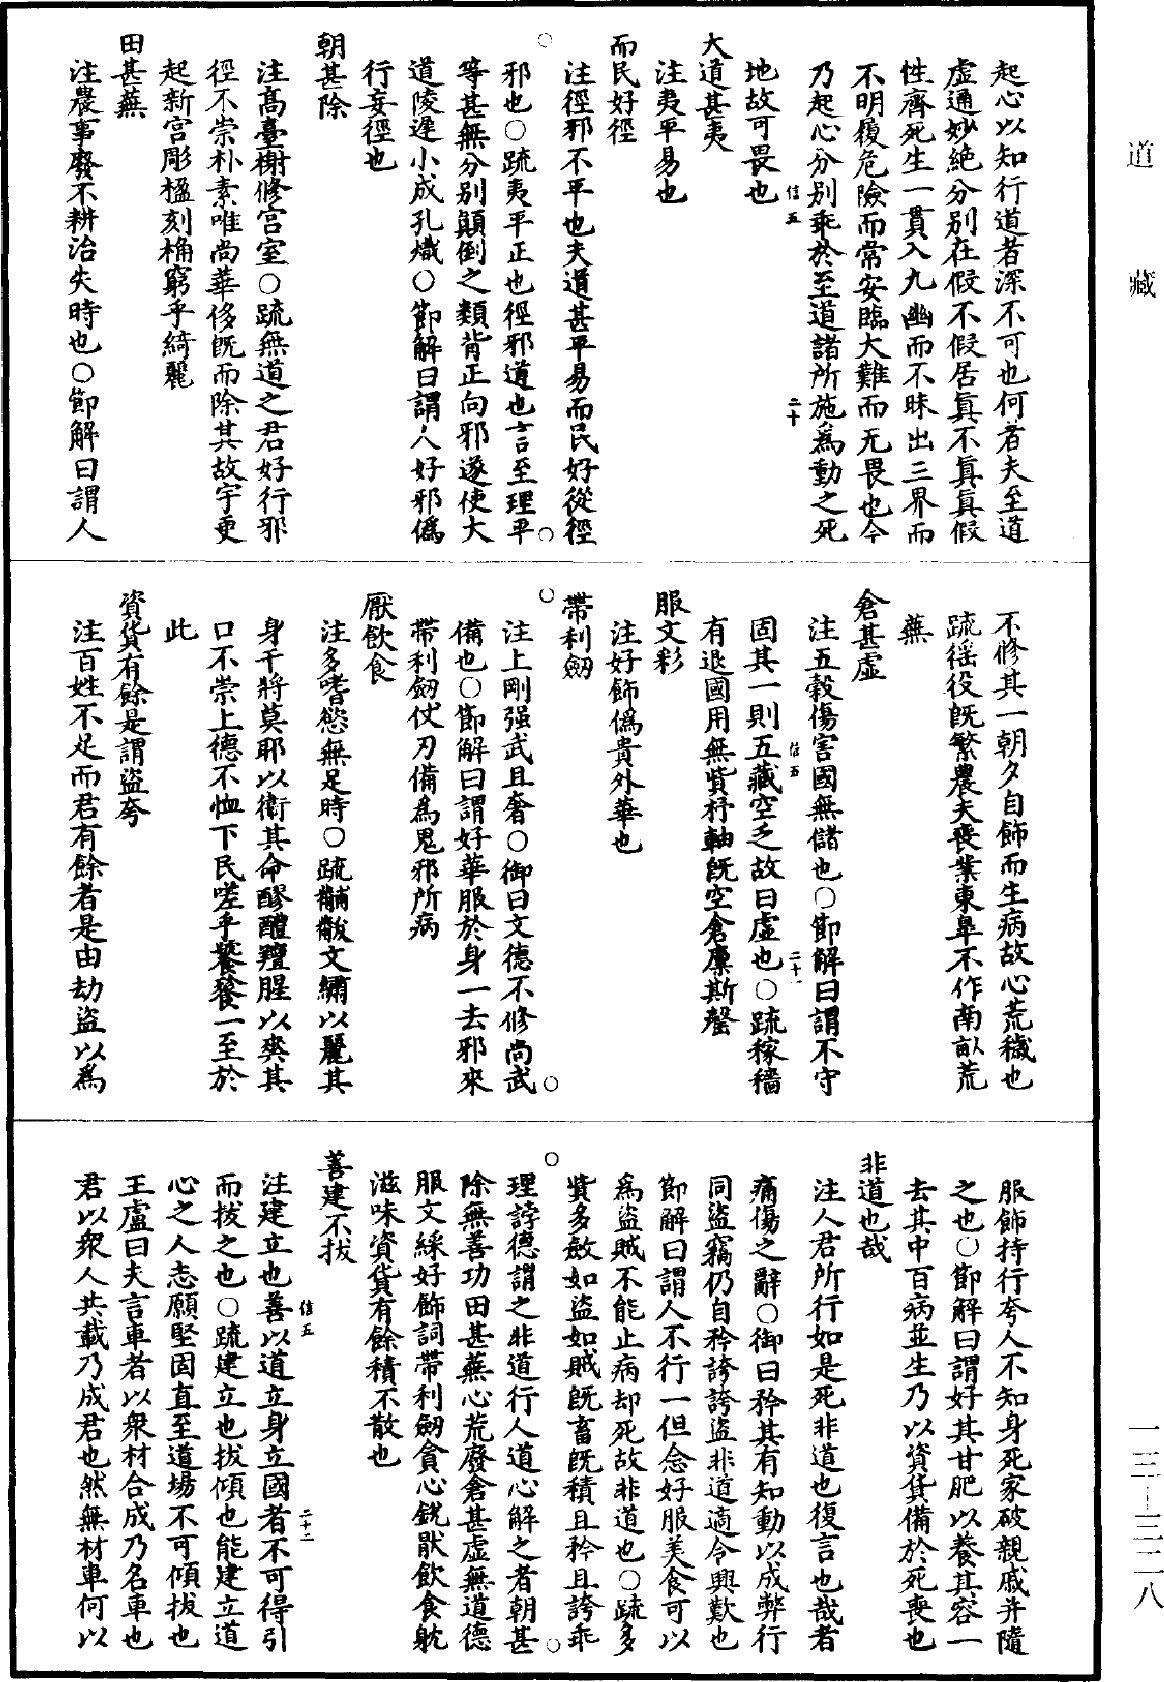 道藏
起心以知行道者深不可也何者夫至道
虛通妙絶分别在假不假居真不真真假
性齊死生一貫入九幽而不昧出三界而
不明履危險而常安臨大難而无畏也今
乃起心分别乖於至道諸所施爲動之死
信五
二十
地故可畏也
大道甚夷
注夷平易也
而民好徑
注徑邪不平也夫道甚平易而民好從徑
邪也○䟽夷平正也徑邪道也言至理平
等甚無分别顛倒之類背正向邪遂使大
道陵遲小成孔熾○節解曰謂人好邪僞
行妄徑也
朝甚除
注高臺榭修宫室○䟽無道之君好行邪
徑不崇朴素唯尚華侈既而除其故宇更
起新宫彫楹刻桷窮乎綺麗
田甚蕪
注農事廢不耕治失時也○節解曰謂人
不修其一朝夕自飾而生病故心荒穢也
䟽徭役既繁農夫喪業東臯不作南畝荒
蕪
倉甚虚
注五穀傷害國無儲也○節解曰謂不守
信五
二十一
固其一則五藏空乏故曰虚也○䟽稼穡
有退國用無貲杼軸既空倉廪斯罄
服文彩
注好飾僞貴外華也
帶利劒
注上剛强武且奢○御曰文德不修尚武
備也○節解曰謂好華服於身一去邪來
帶利劒仗刃備爲鬼邪所病
厭飲食
注多嗜慾無足時○䟽黼黻文繡以麗其
身干將莫耶以衛其命醪醴羶腥以爽其
口不崇上德不恤下民嗟乎饕餮一至於
此
資貨有餘是謂盜夸
注百姓不足而君有餘者是由劫盜以爲
服飾持行夸人不知身死家破親戚并隨
之也○節解曰謂好其甘肥以養其容一
去其中百病並生乃以資貨備於死喪也
非道也哉
注人君所行如是死非道也復言也哉者
痛傷之辭○御曰矜其有知動以成弊行
同盜竊仍自矜誇誇盜非道適令興歎也
節解曰謂人不行一但念好服美食可以
爲盜賊不能止病却死故非道也○䟽多
貲多斂如盜如賊既畜既積且矜且誇乖
理誖德謂之非道行人道心解之者朝甚
除無善功田甚蕪心荒廢倉甚虚無道德
服文綵好飾詞帶利劒貪心銳厭飲食躭
滋味資貨有餘積不散也
善建不拔
注建立也善以道立身立國者不可得引
信五
二十二
而拔之也○䟽建立也拔傾也能建立道
心之人志願堅固直至道場不可傾拔也
王盧曰夫言車者以衆材合成乃名車也
君以衆人共載乃成君也然無材車何以
一三—三二八